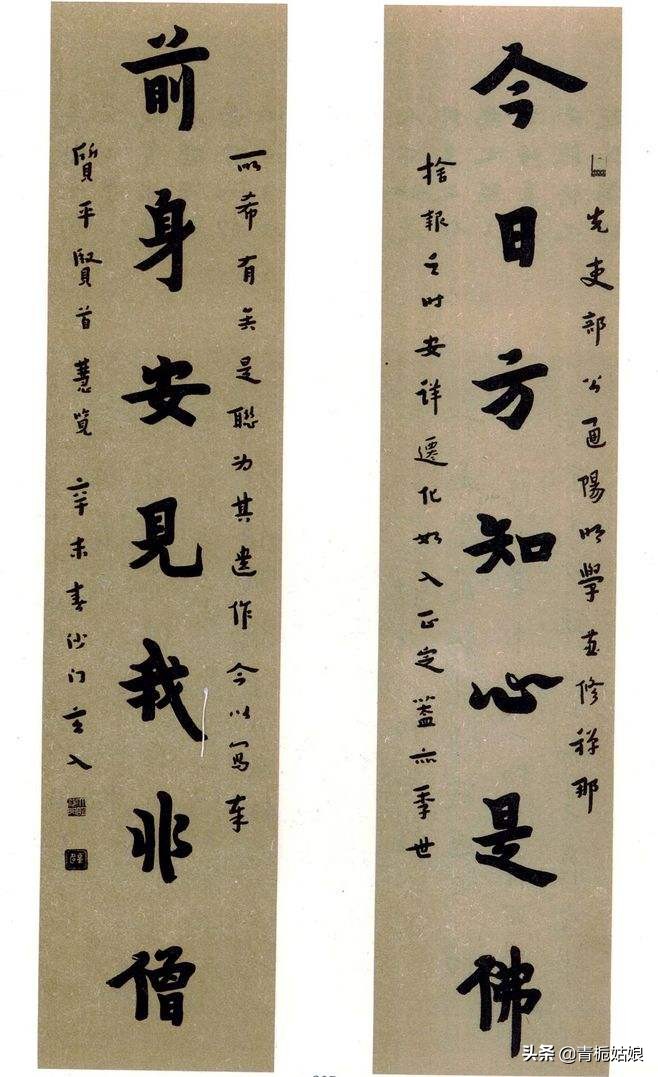 先吏部公通陽明學兼修禪那
今日方知心是佛
捨報之時安詳遷化如入正定蓋亦季世
所希有矣是聯為其遺作今以寫奉
前身安見我非僧
質平賢首慧覽 辛未春沙门玄入
头条 @青栀姑娘